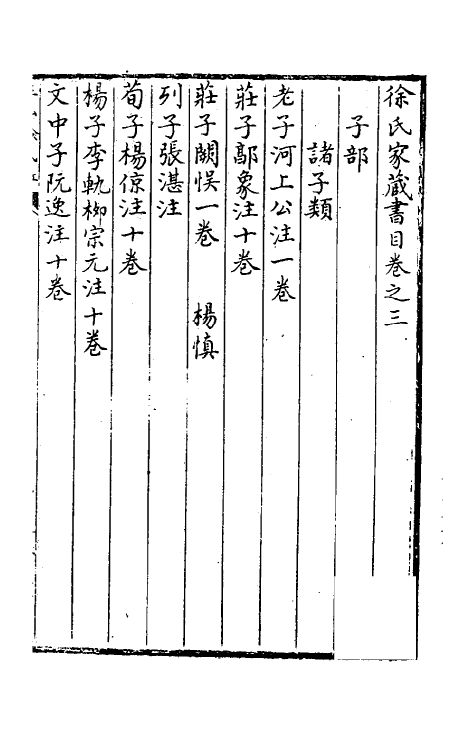 徐氏家藏書目卷之三
子部
諸子類
老子河上公注一卷
莊子郭象注十卷
莊子闕悞一卷 楊慎
列子張湛注
荀子楊倞注十卷
楊子李軌柳宗元注十卷
文中子阮逸注十卷